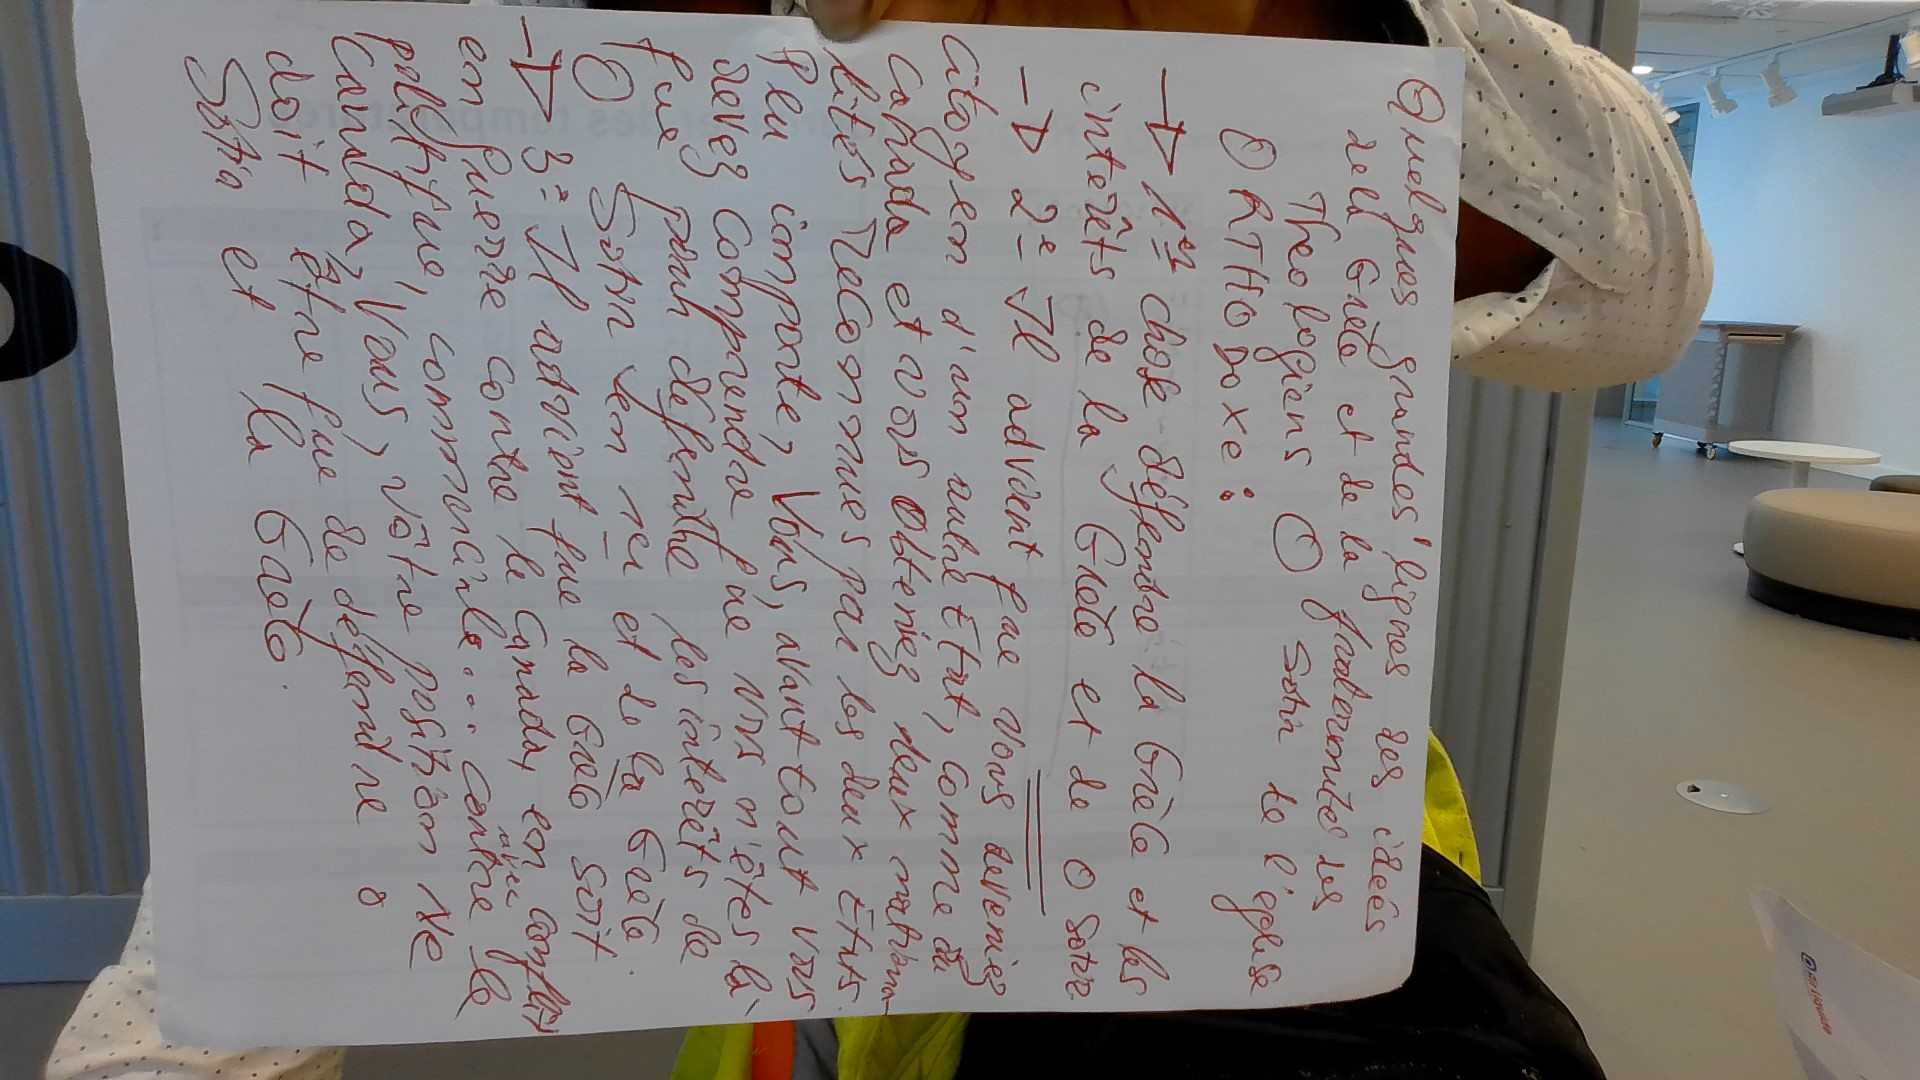 Quelques grandes lignes des idées
de la Grèce et de la fraternités des
Theologiens O Sotir de l'église
ORTHODOXE :
→ 1er chose défendre la Grèce et les
intérêts de la Grèce et de O Sotir
→ 2e Il advient que vous deveniez
Citoyen d'un autre État, comme du
Canada et vous obteniez deux nationa
lités reconnues par les deux États.
Peu importe, Vous, avant tout vous
devez comprendre que vos n'êtes là
que pour défendre les intérêts de
O Sotir et de la Grèce.
→ 3e Il advient que la Grèce soit
en guerre contre le Canada, en conflit
politique, commerciale... contre le
Canada, Vous, vôtre position Ne
doit être que de défendre O
Sotir et la Grèce.